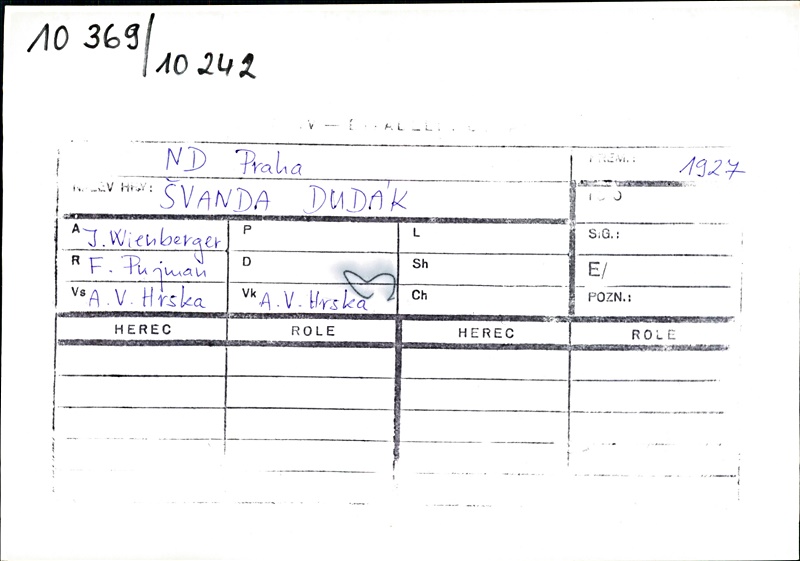 10 369/
10 242
ND Praha
PREM.: 1927
NÁZEV HRY: ŠVANDA DUDÁK
A J. Wienberger P L SIG.:
R F. Pujman D Sh E/
Vs A. V. Hrska Vk A. V. Hrska Ch POZN.:
HEREC ROLE HEREC ROLE